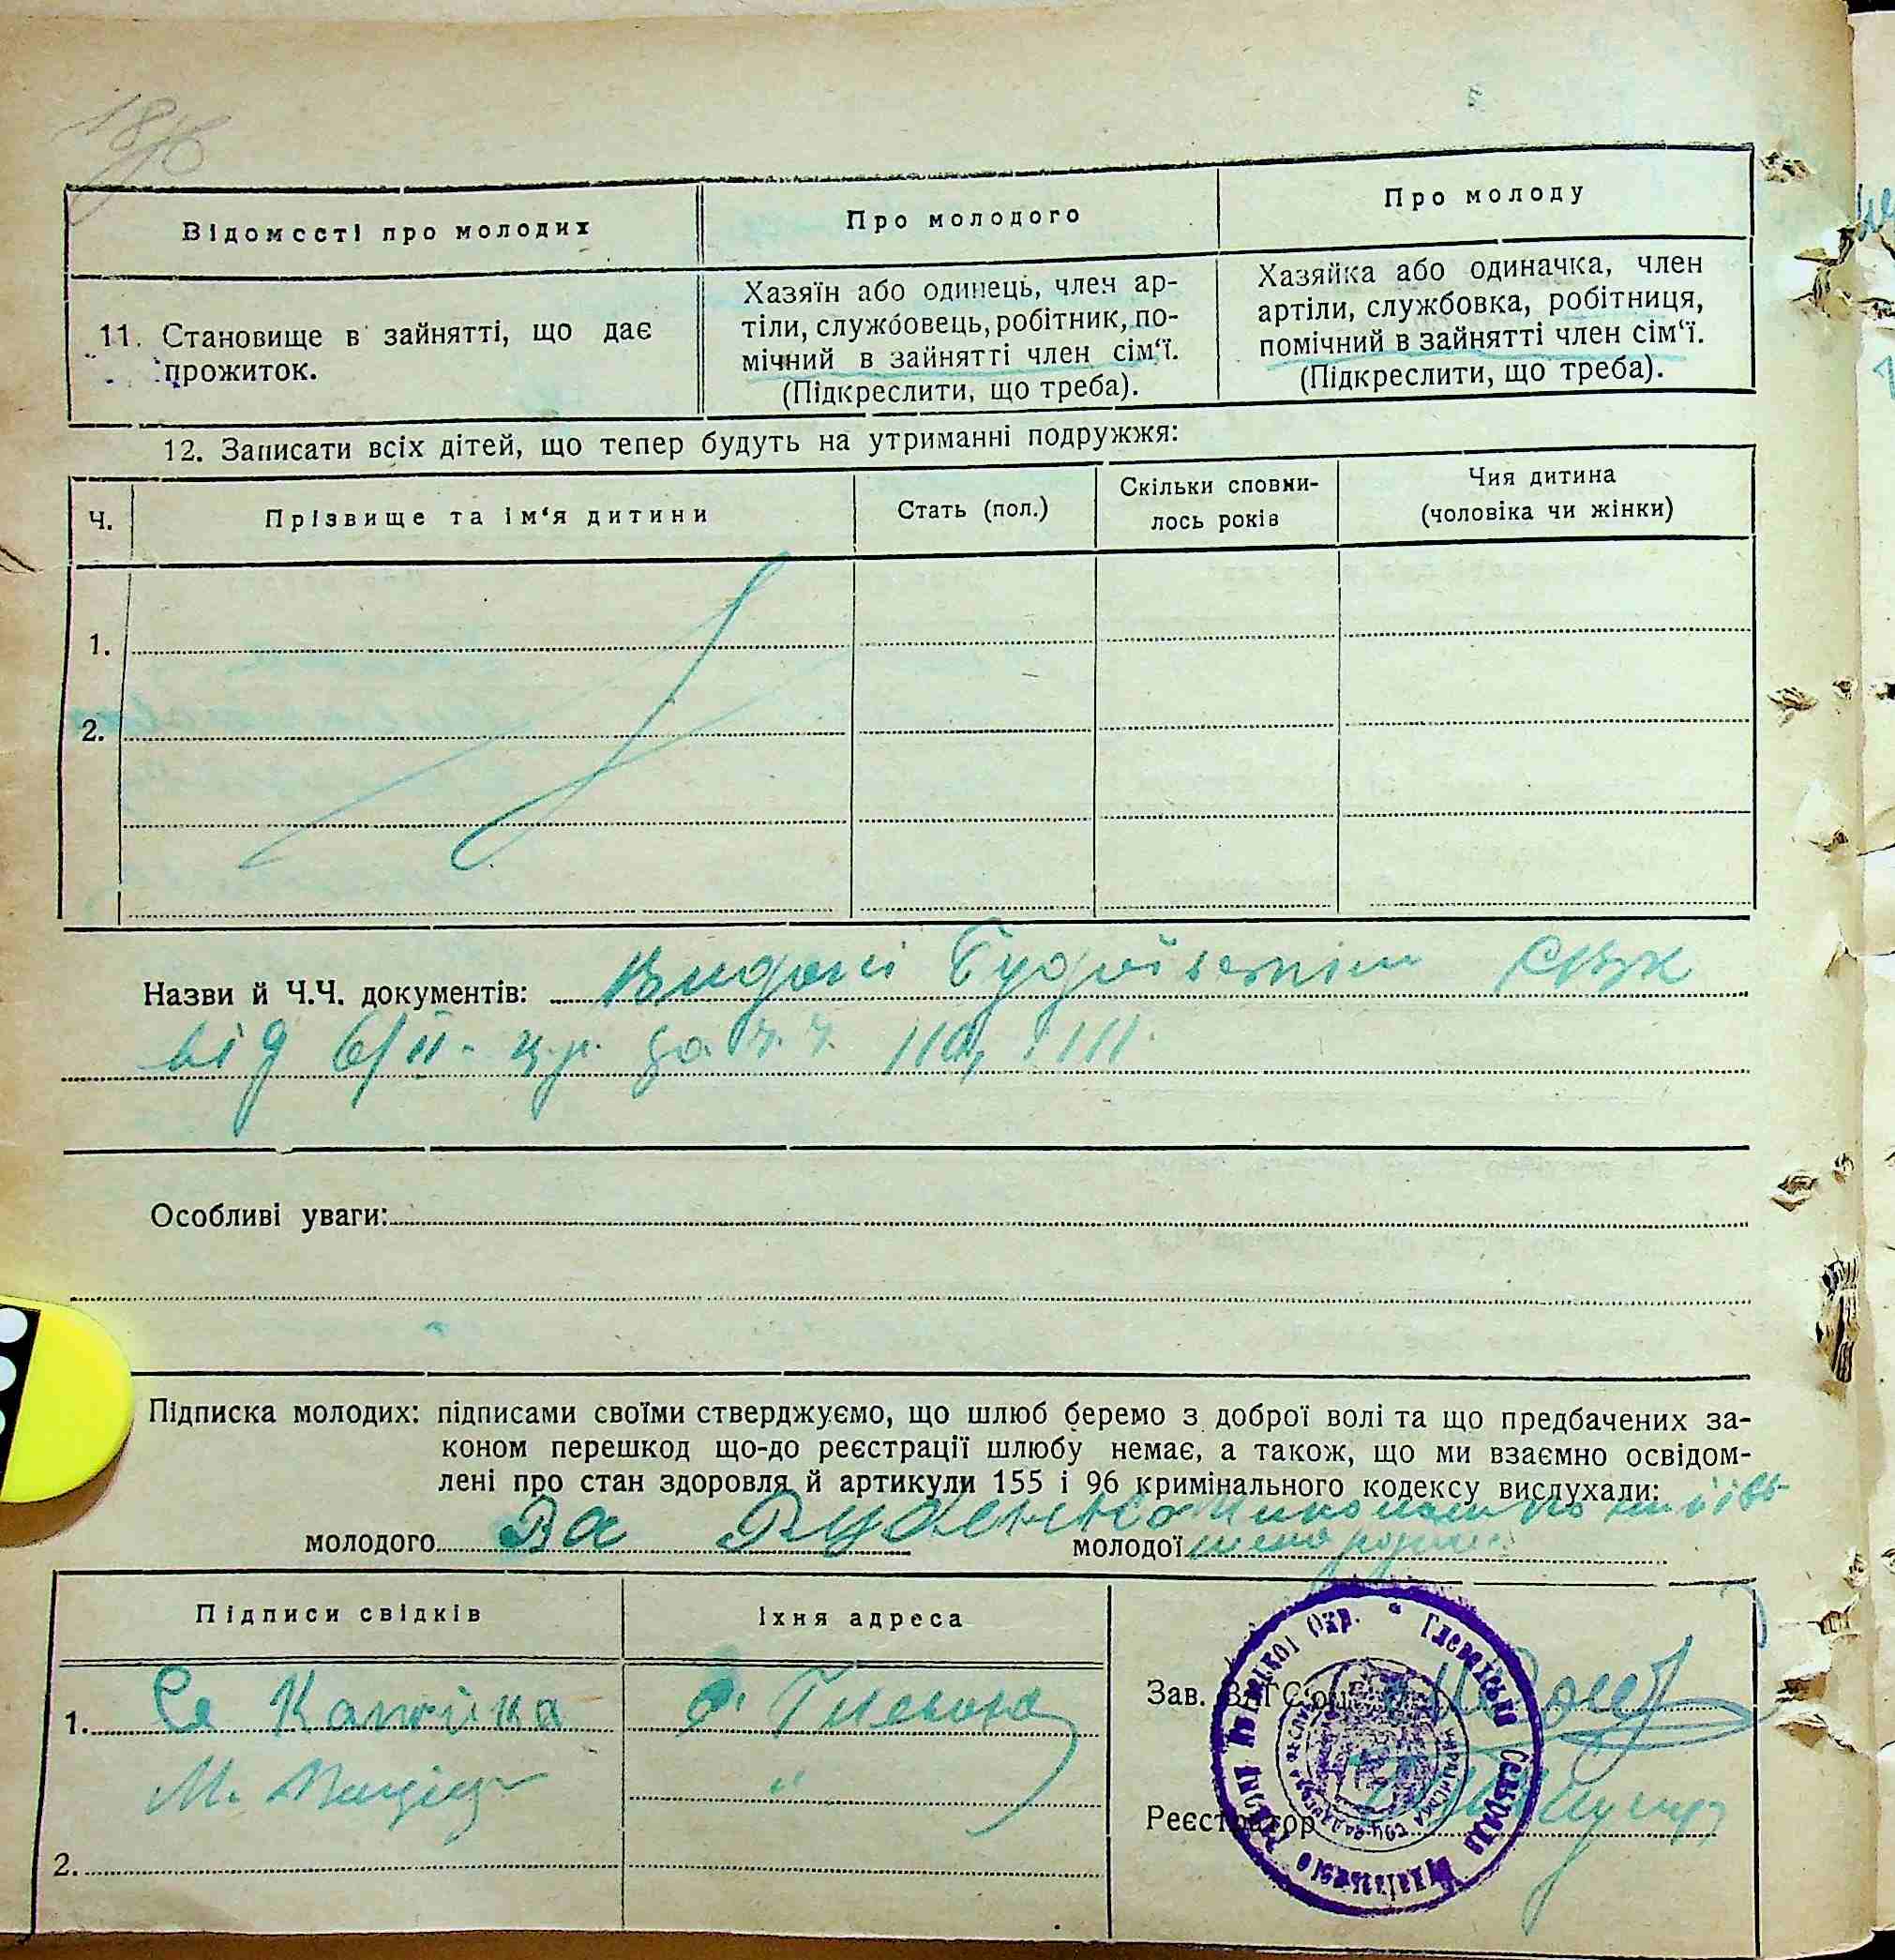 Відомості про молодих
Про молодого
Про молоду
11. Становище в зайнятті, що дає
прожиток.
Хазяїн або одинець, член ар-
тіли, службовець, робітник, по-
мічний в зайнятті член сім‘ї.
(Підкреслити, що треба).
Хазяйка або одиначка, член
артіли, службовка, робітниця,
помічний в зайнятті член сім‘ї.
(Підкреслити, що треба).
12. Записати всіх дітей, що тепер будуть на утриманні подружжя:
Ч.
Прізвище та ім‘я дитини
Стать (пол.)
Скільки сповни-
лось років
Чия дитина
(чоловіка чи жінки)
1.
2.
Назви й Ч.Ч. документів: Видані
від 6/II- ц.р. за ч.ч. 110, 111.
Особливі уваги:
Підписка молодих: підписами своїми стверджуємо, що шлюб беремо з доброї волі та що предбачених за-
коном перешкод що-до реєстрації шлюбу немає, а також, що ми взаємно освідом-
лені про стан здоровля й артикули 155 і 96 кримінального кодексу вислухали:
молодого Руденко
молодої
Підписи свідків
Їхня адреса
1.
"
2.
Зав. ЗАГС'ом
Реєстратор